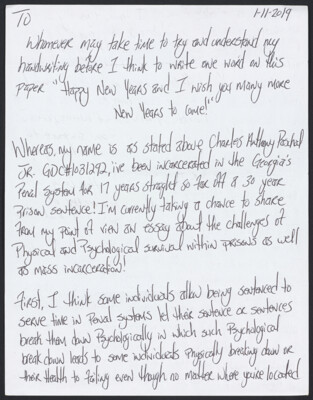 1-11-2019
TO
Whomever may take time to try and understand my
handwriting before I think to write one word on this
paper "Happy New Years and I wish you many more
New Years to come!"
Whereas, my name is as stated above Charles Anthony
JR. GDC#1031292, i've been incarcerated in the Georgia's
Penal system for 17 years straight so far off a 30 year
Prison sentence! I'm currently taking a chance to share
from my point of view an essay about the challenges of
Physical and Psychological survival within prisons as well
as mass incarceration!
First, I think some individuals allow being sentenced to
serve time in Penal systems let their sentence or sentences
break them down Psychologically in which such Psychological
break down leads to some individuals physically breaking down or
their Health to failing even though no matter where you're located